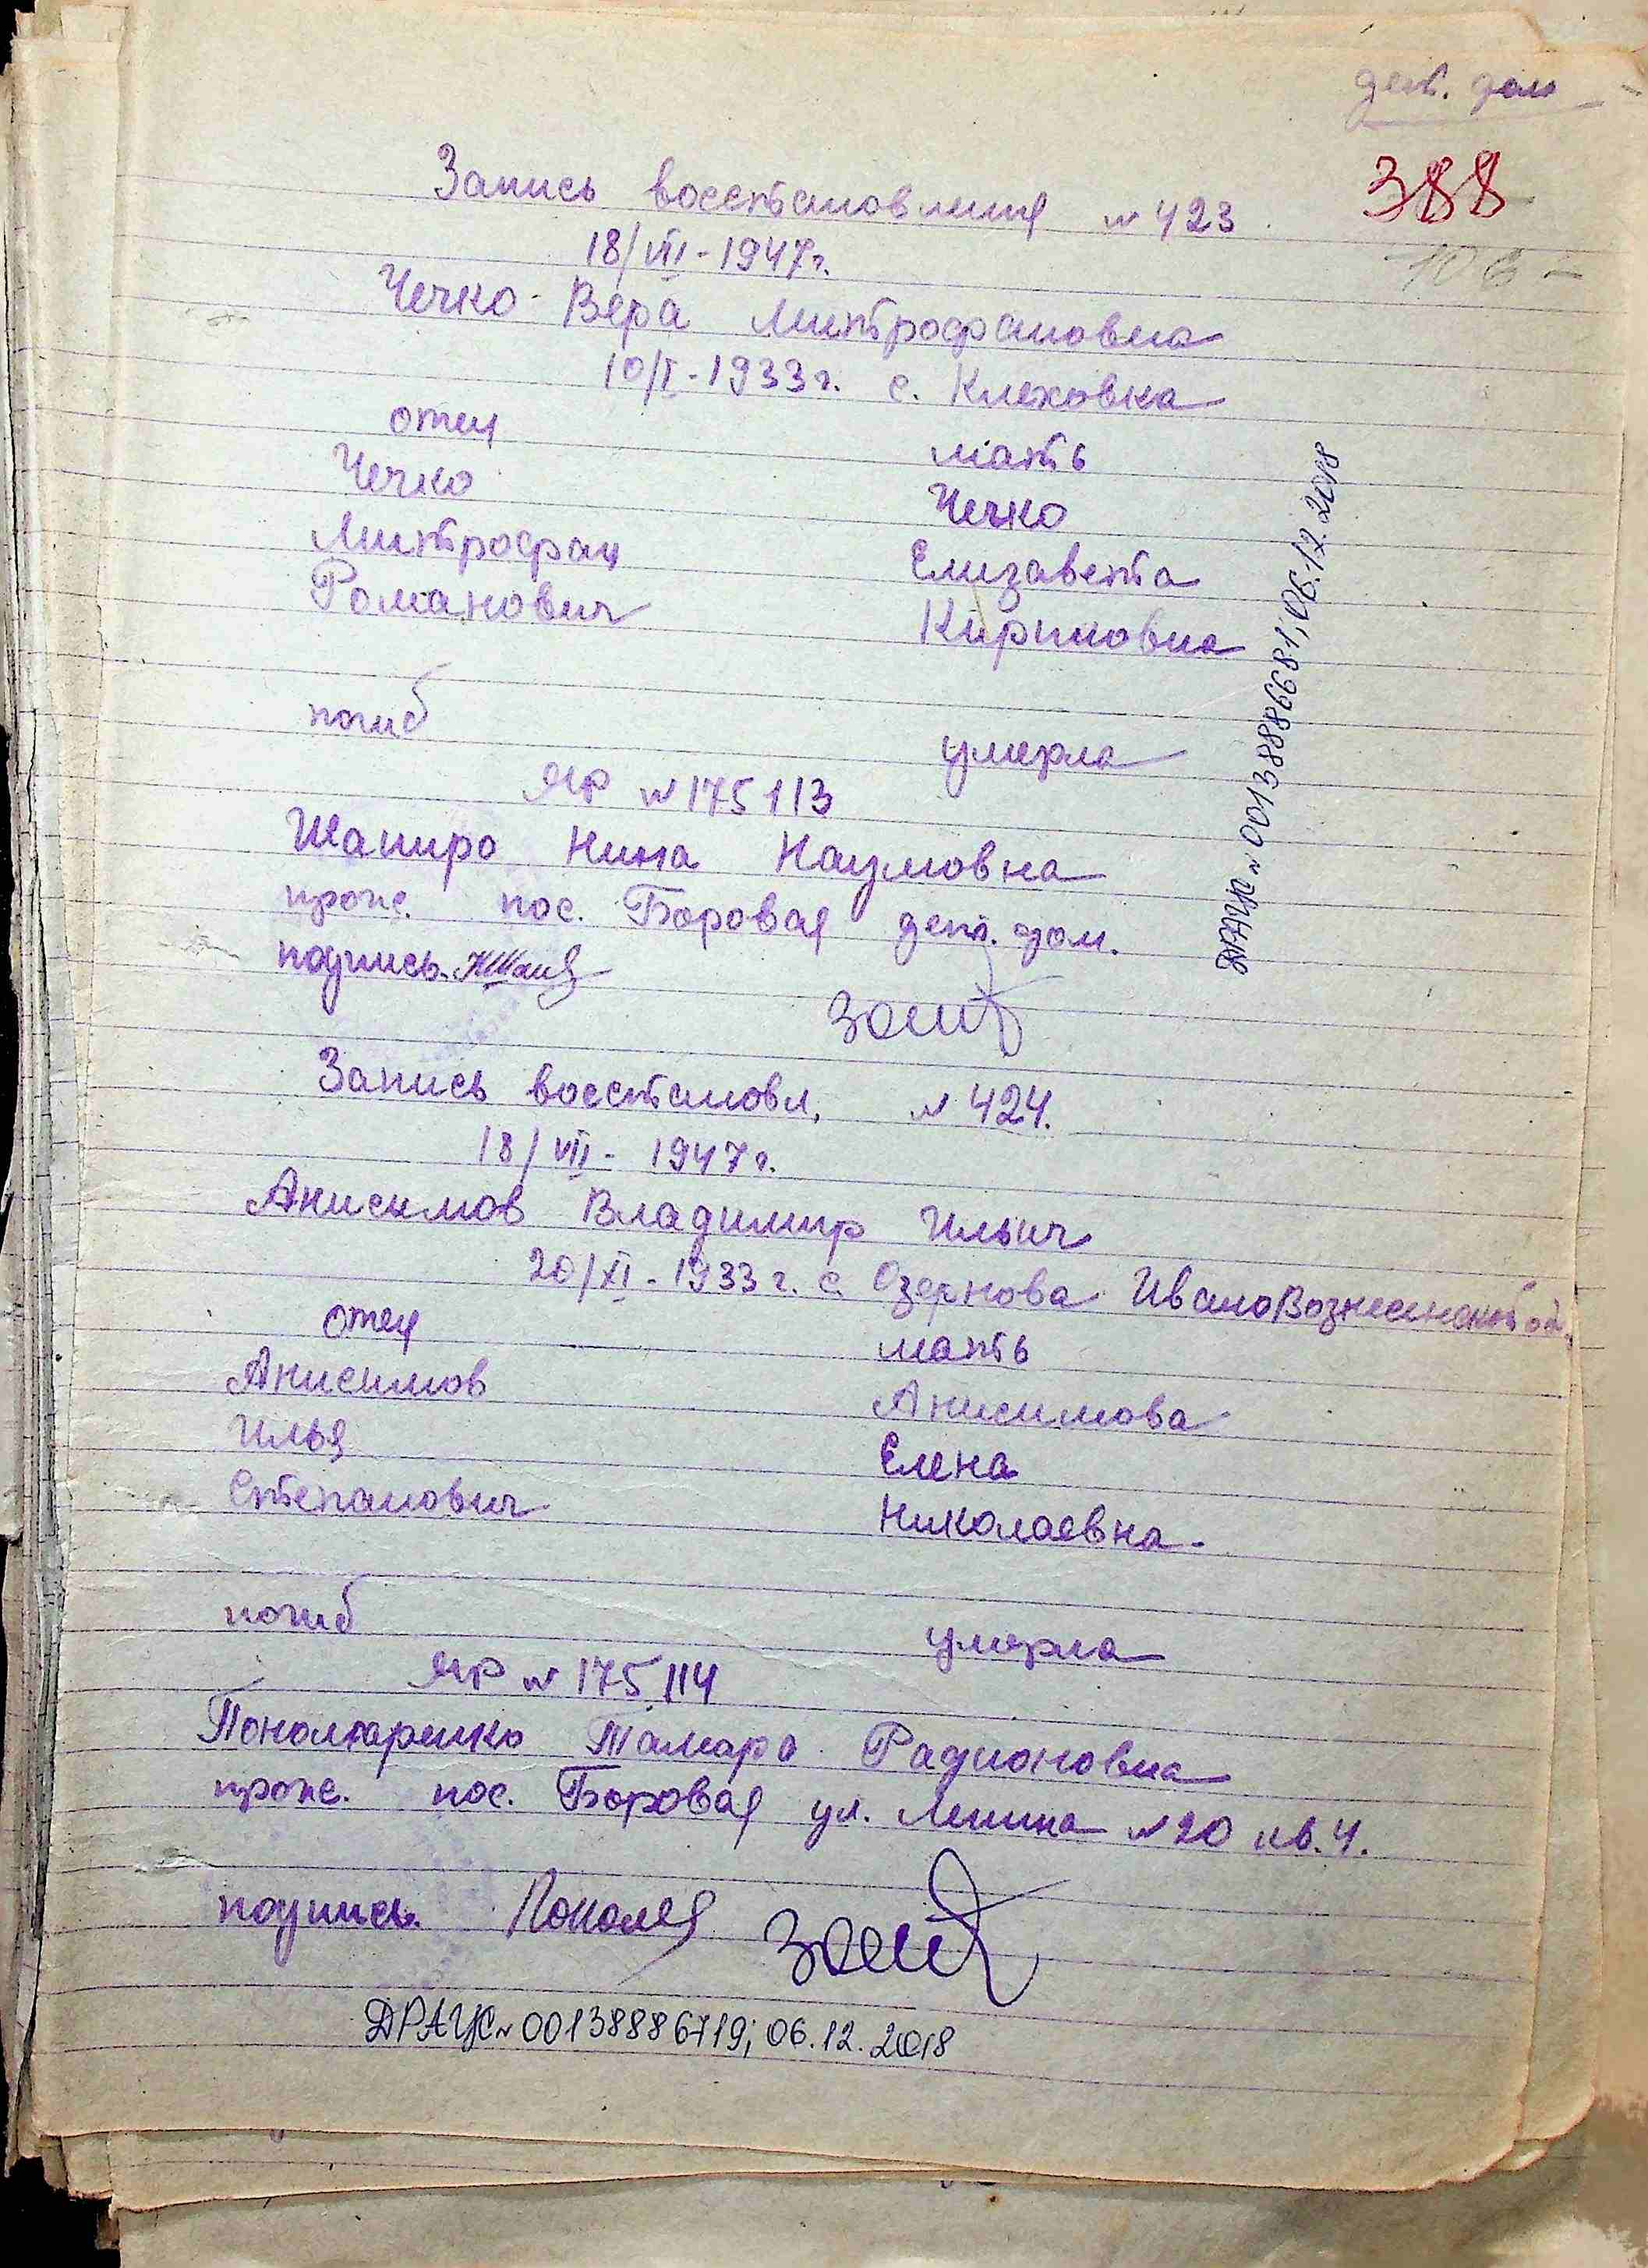 дет. дом
388
Запись восстановления № 423
18/VII - 1947г.
Чечко Вера Митрофановна
10/I - 1933г. с. Клеховка
отец мать
Чечко Чечко
Митрофан Елизавета
Романович Кириловна
погиб умерла
ЯР № 175113
Шапиро Нина Наумовна
прож. пос. Боровая дет. дом.
подпись
ДРАЦС № 00138886681; 06.12.2018
Запись восстановл. № 424.
18/VII - 1947г.
Анисимов Владимир Ильич
20/XI - 1933г. с. Озернова ИваноВознесенской об.
отец мать
Анисимов Анисимова
Илья Елена
Степанович Николаевна.
погиб умерла
ЯР № 175114
Пономаренко Тамара Радионовна
прож. пос. Боровая ул. Ленина № 20 кв. 4.
подпись
ДРАЦС № 00138886719; 06.12.2018